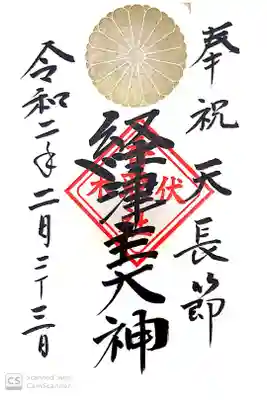 奉祝天長節
経津主大神
令和二年二月二十三日
CS
CamScanner